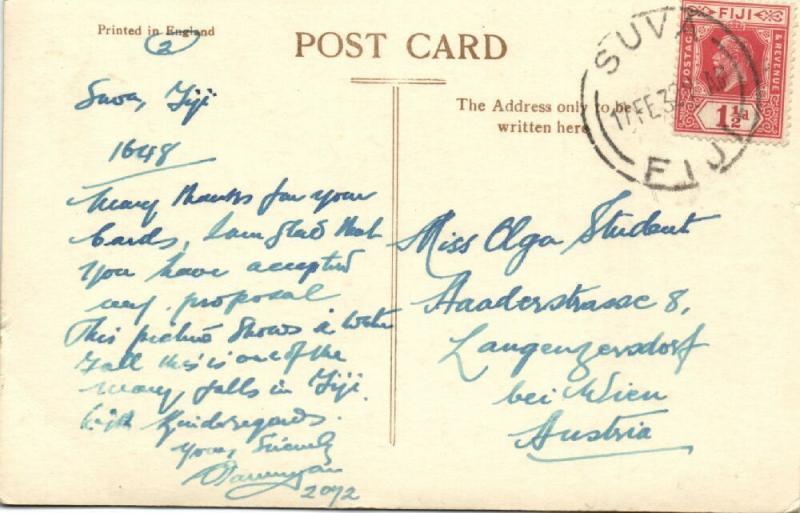 Printed in England
2
POST CARD
The Address only to be
written here
SUVA
17 FE 32
FIJI
FIJI
POSTAGE & REVENUE
1½d
Suva, Fiji
1648
Many thanks for your
Cards, I am glad that
you have accepted
my proposal
This picture shows a Water
Fall this is one of the
many falls in Fiji.
With Kind regards.
Yours Sincerely
2092
Miss Olga Student
Haaderstrasse 8,
Langenzersdorf
bei Wien
Austria